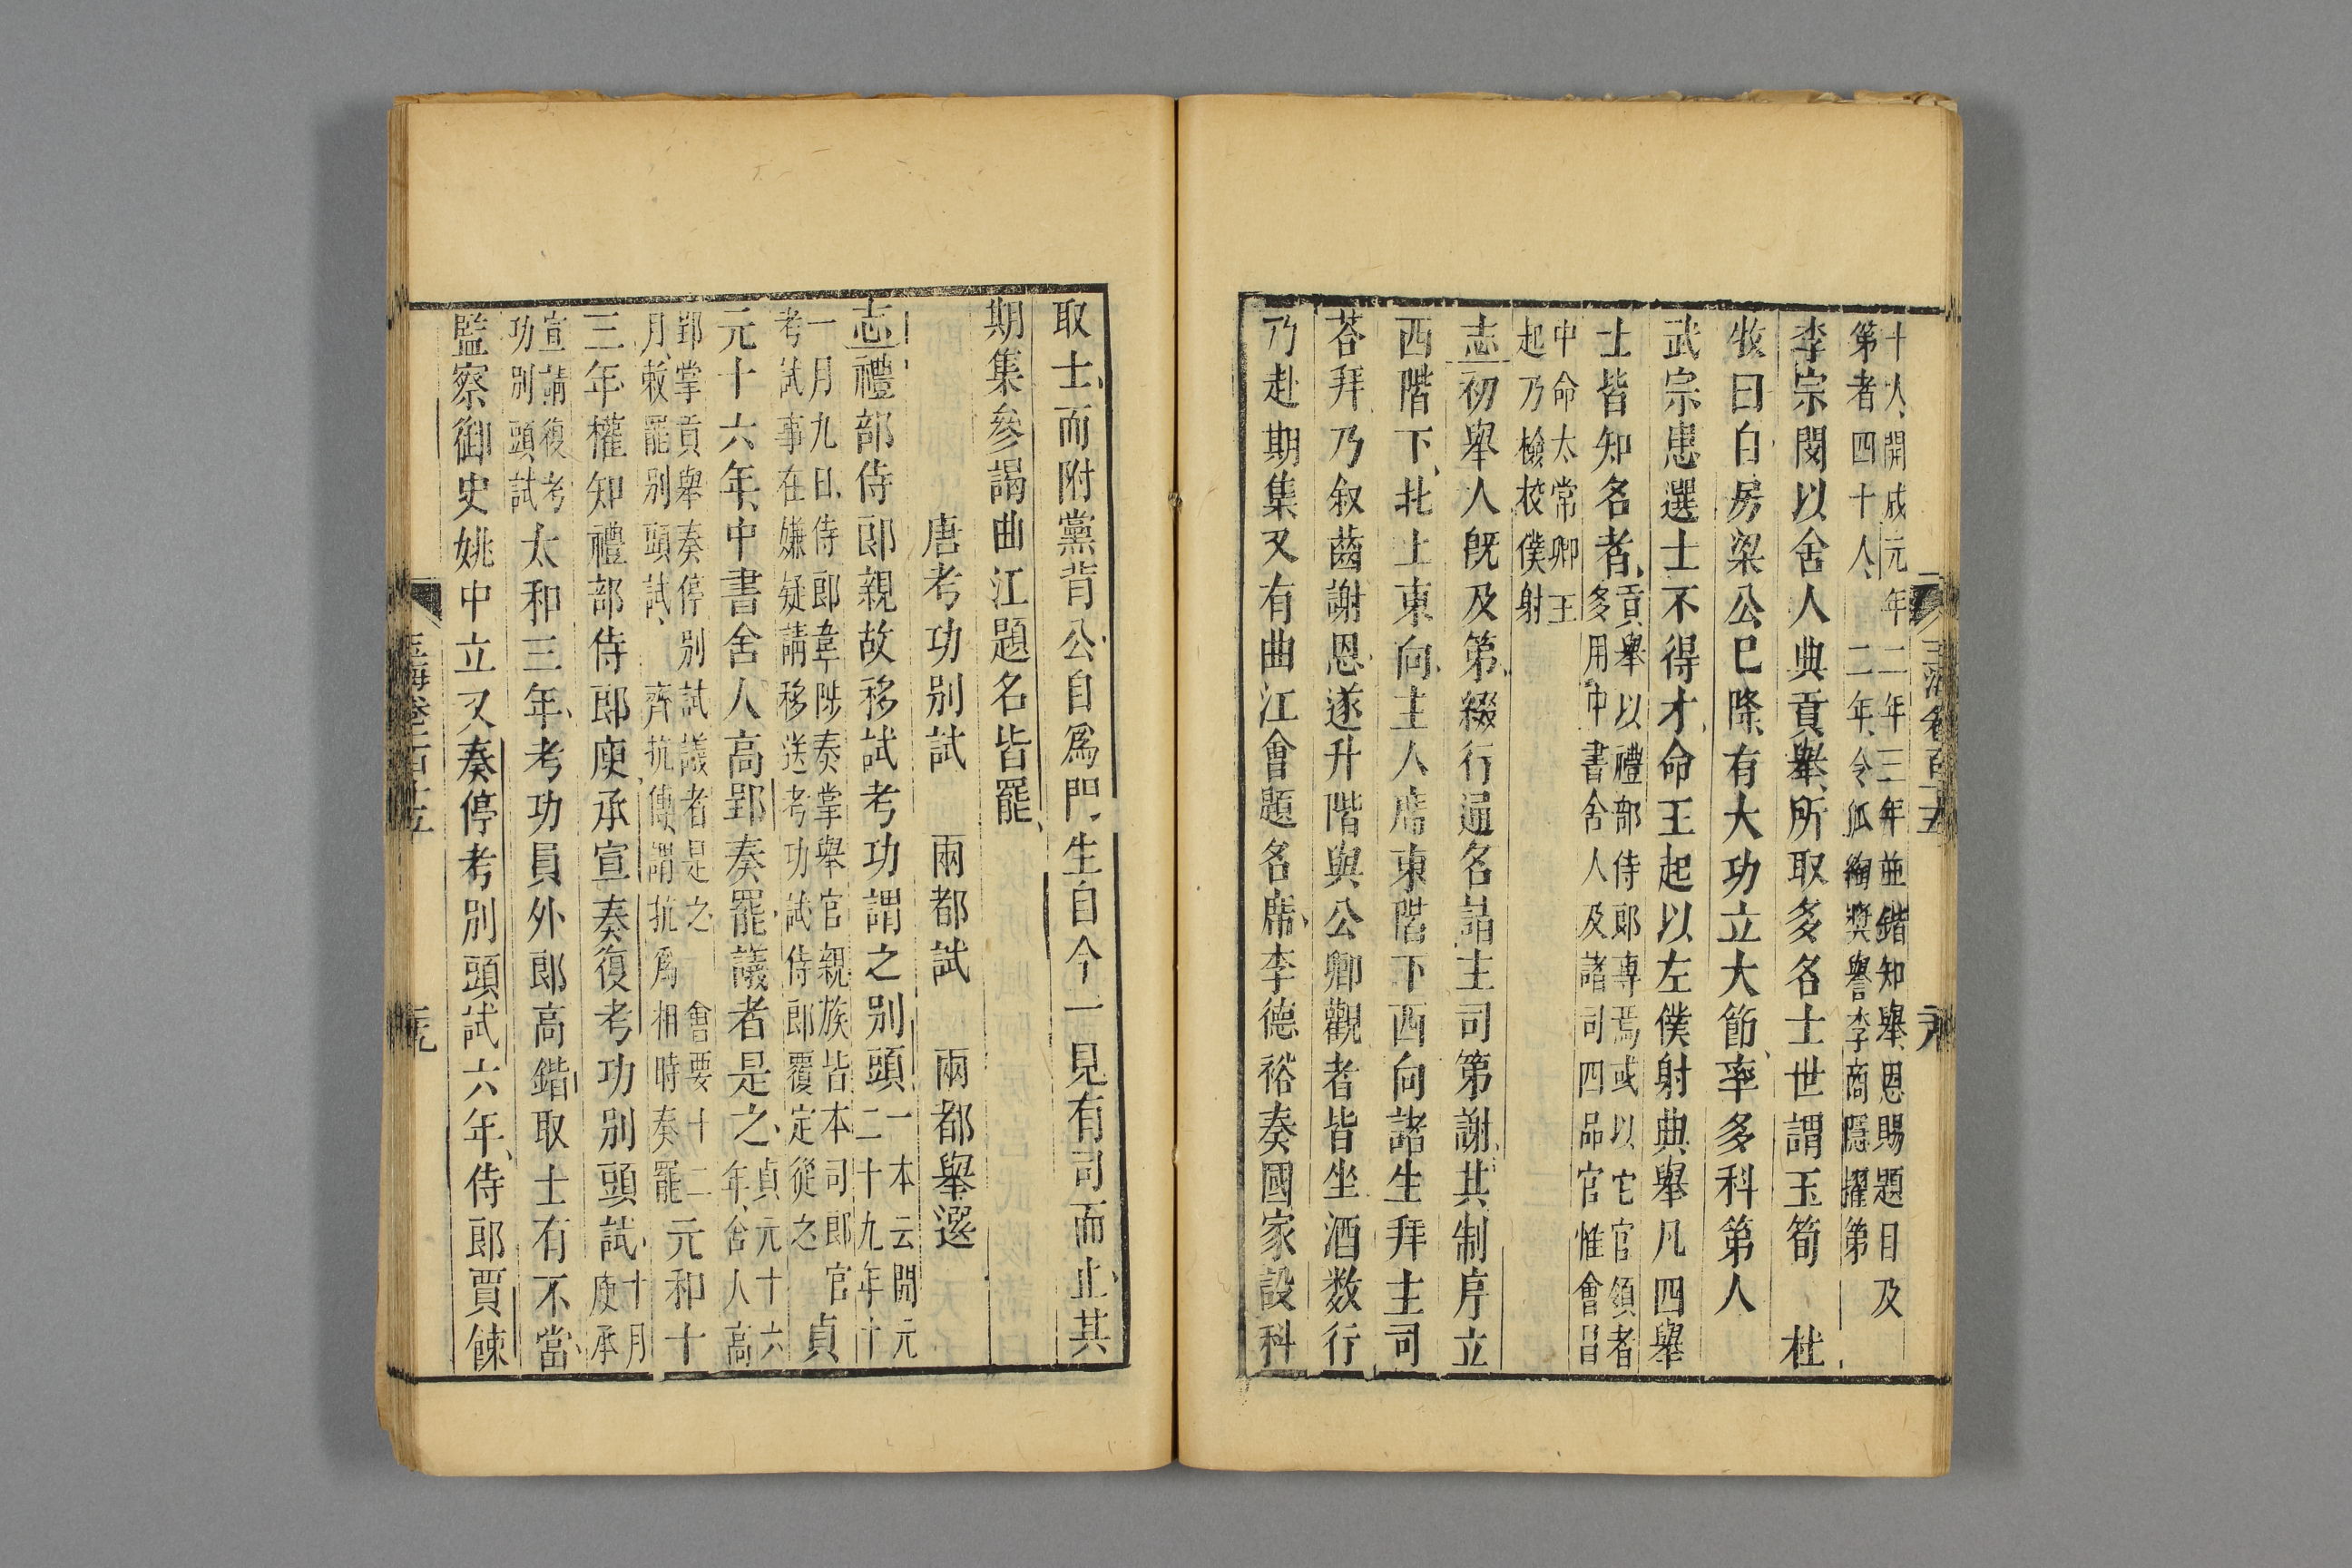 十人開成元年二年三年並鍇知舉恩賜題目及
第者四十人二年令狐綯奬譽李商隱擢第
李宗閔以舍人典貢舉所取多名士世謂玉筍 杜
牧曰自房梁公已降有大功立大節率多科第人
武宗患選士不得才命王起以左僕射典舉凡四舉
士皆知名者
貢舉以禮部侍郎專焉或以它官領者
多用中書舍人及諸司四品官惟會昌
中命太常卿王
起乃檢校僕射
志初舉人旣及第綴行通名詣主司第謝其制序立
西階下北上東向主人席東階下西向諸生拜主司
荅拜乃叙齒謝恩遂升階與公卿觀者皆坐酒数行
乃赴期集又有曲江會題名席李德裕奏國家設科
玉海卷百十五
取士而附黨背公自爲門生自今一見有司而止其
期集參謁曲江題名皆罷
唐考功别試 兩都試 兩都舉選
志禮部侍郎親故移試考功謂之别頭
一本云開元
二十九年十
一月九日侍郎韋陟奏掌舉官親族皆本司郎官
考試事在嫌疑請移送考功試侍郎覆定從之
貞
元十六年中書舍人高郢奏罷議者是之
貞元十六
年舍人高
郢掌貢舉奏停别試議者是之 會要十二
月敕罷别頭試 齊抗傳謂抗爲相時奏罷
元和十
三年權知禮部侍郎庾承宣奏復考功别頭試
十月
庾承
宣請復考
功别頭試
太和三年考功員外郎高鍇取士有不當
監察御史姚中立又奏停考别頭試六年侍郎賈餗
玉海卷一百十五